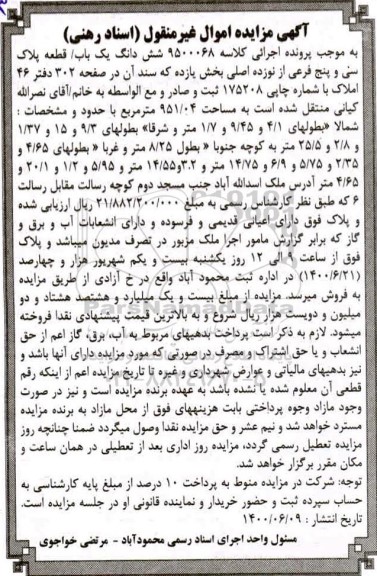 آگهی مزایده اموال غیرمنقول (اسناد رهنی)
به موجب پرونده اجرائی کلاسه ۹۵۰۰۰۶۸ شش دانگ یک باب/ قطعه پلاک
سی و پنج فرعی از نوزده اصلی بخش یازده که سند آن در صفحه ۳۰۲ دفتر ۴۶
املاک با شماره چاپی ۱۷۵۲۰۸ ثبت و صادر و مع الواسطه به خانم/آقای نصرالله
کیانی منتقل شده است به مساحت ۹۵۱/۰۴ مترمربع با حدود و مشخصات :
شمالا «بطولهای ۴/۱ و ۹/۴۵ و ۱/۷ متر و شرقا» بطولهای ۹/۳ و ۱۵ و ۱/۳۷
و ۲/۸ و ۲۵/۵ متر به کوچه جنوبا « بطول ۸/۲۵ متر و غربا « بطولهای ۴/۶۵ و
۲/۳۵ و ۵/۷۵ و ۶/۹ و ۱۴/۷۵ متر و ۳.۲و۱۴/۵۵ متر و ۵/۹۵ و ۱/۲ و ۲۰/۱ و
۴/۶۵ متر آدرس ملک اسدالله آباد جنب مسجد دوم کوچه رسالت مقابل رسالت
۶ که طبق نظر کارشناس رسمی به مبلغ ۲۱/۸۸۲/۲۰۰/۰۰۰ ریال ارزیابی شده
و پلاک فوق دارای اعیانی قدیمی و فرسوده و دارای انشعابات آب و برق و
گاز که برابر گزارش مامور اجرا ملک مزبور در تصرف مدیون میباشد و پلاک
فوق از ساعت ۹ الی ۱۲ روز یکشنبه بیست و یکم شهریور هزار و چهارصد
(۱۴۰۰/۶/۲۱) در اداره ثبت محمود آباد واقع در خ آزادی از طریق مزایده
به فروش میرسد. مزایده از مبلغ بیست و یک میلیارد و هشتصد هشتاد و دو
میلیون و دویست هزار ریال شروع و به بالاترین قیمت پیشنهادی نقدا فروخته
میشود. لازم به ذکر است پرداخت بدهیهای مربوط به آب، برق، گاز اعم از حق
انشعاب و یا حق اشتراک و مصرف در صورتی که مورد مزایده دارای آنها باشد و
نیز بدهیهای مالیاتی و عوارض شهرداری و غیره تا تاریخ مزایده اعم از اینکه رقم
قطعی آن معلوم شده یا نشده باشد به عهده برنده مزایده است و نیز در صورت
وجود مازاد وجوه پرداختی بابت هزینههای فوق از محل مازاد به برنده مزایده
مسترد خواهد شد و نیم عشر و حق مزایده نقدا وصول میگردد ضمنا چنانچه روز
مزایده تعطیل رسمی گردد، مزایده روز اداری بعد از تعطیلی در همان ساعت و
مکان مقرر برگزار خواهد شد.
توجه: شرکت در مزایده منوط به پرداخت ۱۰ درصد از مبلغ پایه کارشناسی به
حساب سپرده ثبت و حضور خریدار و نماینده قانونی او در جلسه مزایده است.
تاریخ انتشار : ۱۴۰۰/۰۶/۰۹
مسئول واحد اجرای اسناد رسمی محمودآباد - مرتضی خواجوی